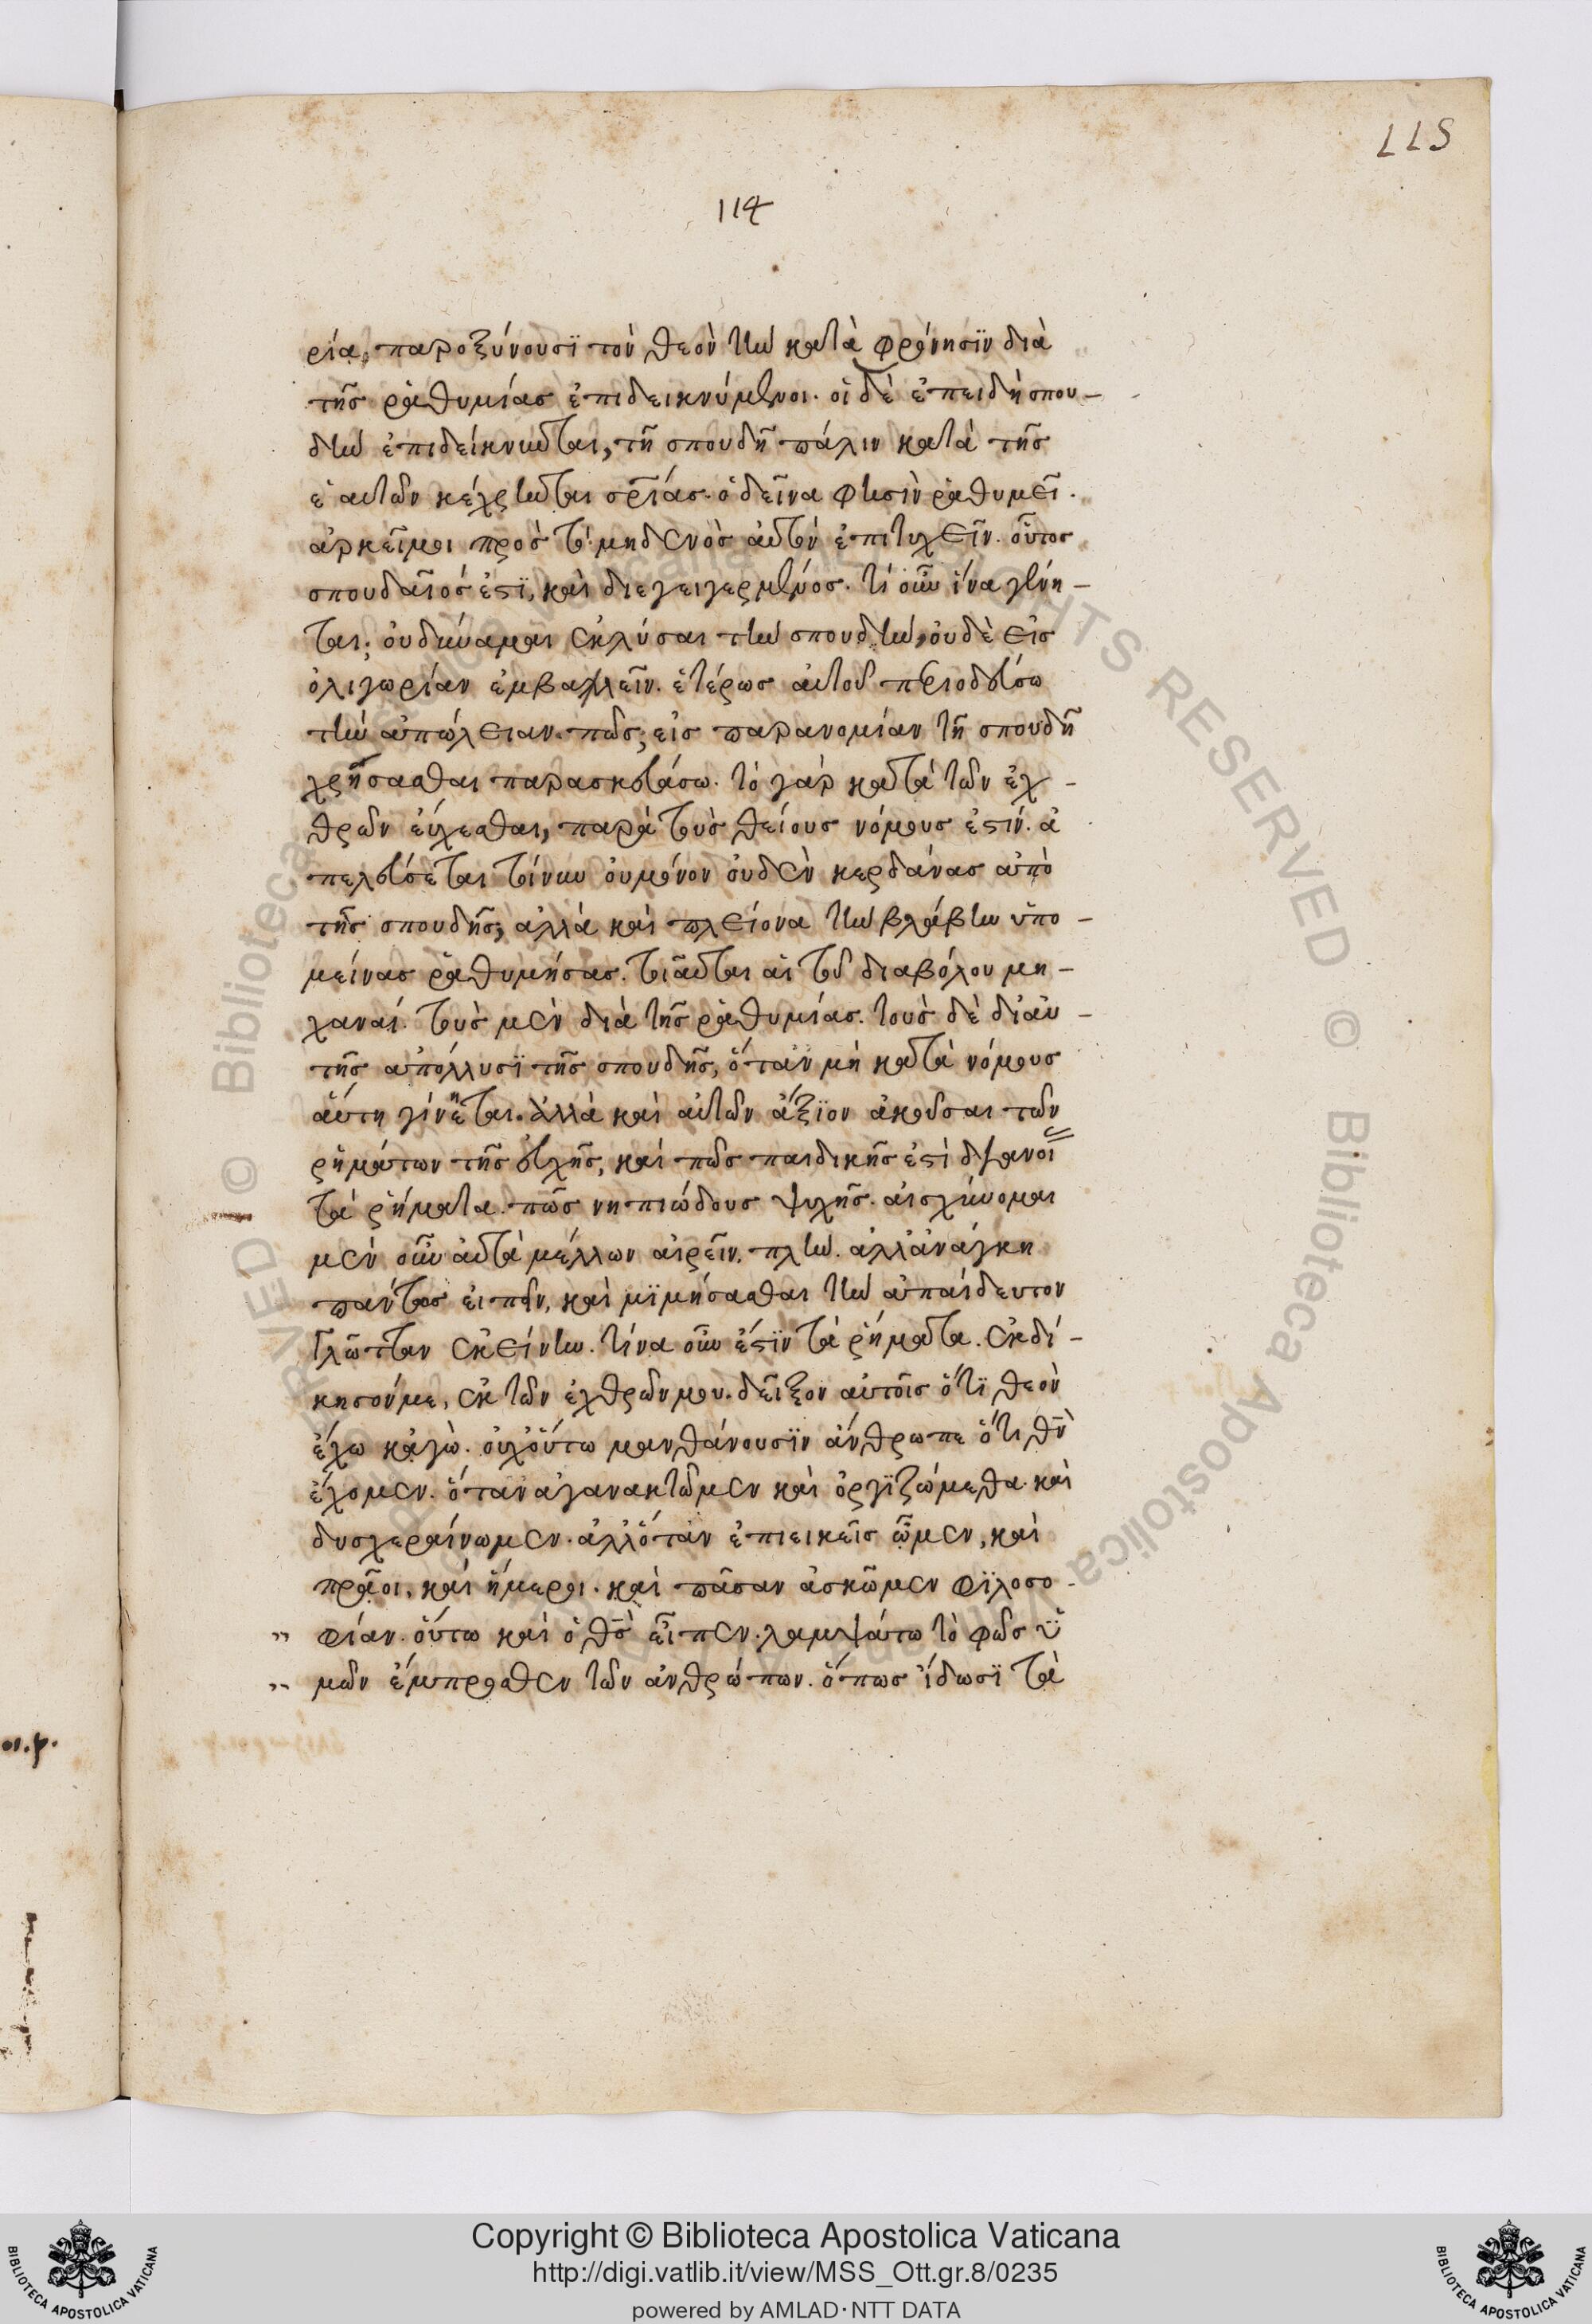 LLS
114
ρία, παροξύνουσϊ τὸν θεὸν τὴν κατὰ φρόνησϊν διὰ
τῆς ῥαθυμίας ἐπιδεικνύμενοι. οἱ δὲ ἐπειδὴ σπου-
δὴν ἐπιδείκνυνται, τῆ σπουδῆ πάλιν κατὰ τῆς
ἑαυτῶν κέχρηνται σρίας. ὁ δεῖνα φησὶν ῥαθυμεῖ.
ἀρκεῖ μοι πρὸς τὸ μηδενὸς αὐτὸν ἐπιτυχεῖν. οὗτος
σπουδαῖός ἐστϊ, καὶ διεγειγερμένος. τί οὖν ἵνα γένη-
ται; οὐ δύναμαι ἐκλύσαι τὴν σπουδὴν, οὐδὲ εἰς
ὀλιγωρίαν ἐμβαλλεῖν. ἑτέρως αὐτοῦ περιοδεύσω
τὴν ἀπώλειαν. πῶς; εἰς παρανομίαν τῆ σπουδῆ
χρήσασθαι παρασκευάσω. τὸ γὰρ κατὰ τῶν ἐχ-
θρῶν εὔχεσθαι, παρὰ τοὺς θείους νόμους ἐστίν. ἀ
πελεύσεται τοίνυν οὐ μόνον οὐδὲν κερδάνας ἀπὸ
τῆς σπουδῆς, ἀλλὰ καὶ πλείονα τὴν βλάβην ὑπο-
μείνας ῥαθυμήσας. τοιαῦται αἱ τοῦ διαβόλου μη-
χαναί. τοὺς μὲν διὰ τῆς ῥαθυμίας. τοὺς δὲ δι' αὐ-
τῆς ἀπόλλυσϊ τῆς σπουδῆς, ὅταν μὴ κατὰ νόμους
αὕτη γίνηται. ἀλλὰ καὶ αὐτῶν ἄξϊον ἀκοῦσαι τῶν
ῥημάτων τῆς εὐχῆς, καὶ πῶς παιδικῆς ἐστὶ διανοί
τὰ ῥήματα. πῶς νηπιώδους ψυχῆς. αἰσχύνομαι
μὲν οὖν αὐτὰ μέλλων αἰρεῖν. πλὴν. ἀλλ' ἀνάγκη
πάντως εἰπεῖν, καὶ μϊμήσασθαι τὴν ἀπαίδευτον
γλῶτταν ἐκείνην. τίνα οὖν ἐστϊν τὰ ῥήματα. ἐκδί-
κησόν με, ἐκ τῶν ἐχθρῶν μου. δεῖξον αὐτοῖς ὅτϊ θεὸν
ἔχω κἀγὼ. οὐχ οὕτω μανθάνουσϊν ἄνθρωπε ὅτι θν
ἔχομεν. ὅταν ἀγανακτῶμεν καὶ ὀργϊζώμεθα. καὶ
δυσχεραίνωμεν. ἀλλ' ὅταν ἐπιεικεῖς ὦμεν, καὶ
πρᾶοι, καὶ ἥμεροι. καὶ πᾶσαν ἀσκῶμεν φϊλοσο-
φίαν. οὕτω καὶ ὁ θς εἶπεν. λαμψάτω τὸ φῶς ὑ
μῶν ἔμπροσθεν τῶν ἀνθρώπων. ὅπως ἴδωσϊ τὰ
Copyright © Biblioteca Apostolica Vaticana
http://digi.vatlib.it/view/MSS_Ott.gr.8/0235
powered by AMLAD·NTT DATA